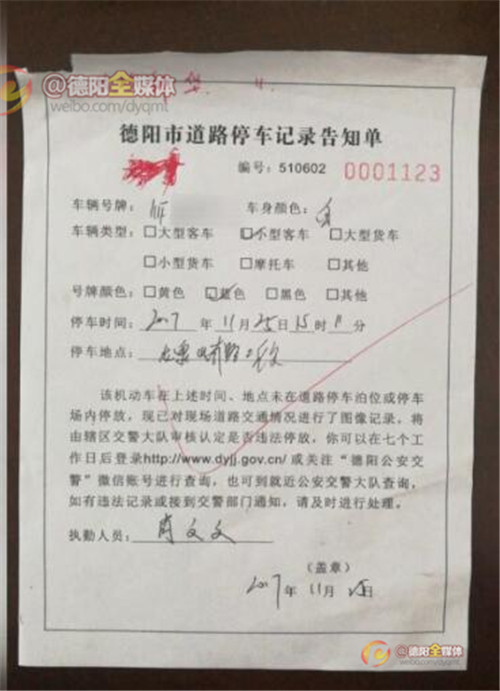 @德阳全媒体
weibo.com/dyqmt
德阳市道路停车记录告知单
编号：510602 0001123
车辆号牌：川F 车身颜色：
车辆类型：□大型客车 □小型客车 □大型货车
□小型货车 □摩托车 □其他
号牌颜色：□黄色 □蓝色 □黑色 □其他
停车时间：2017 年 11 月 25 日 15 时 11 分
停车地点：
该机动车在上述时间、地点未在道路停车泊位或停车
场内停放，现已对现场道路交通情况进行了图像记录，将
由辖区交警大队审核认定是否违法停放，你可以在七个工
作日后登录http://www.dyjj.gov.cn/或关注“德阳公安交
警”微信账号进行查询，也可到就近公安交警大队查询，
如有违法记录或接到交警部门通知，请及时进行处理。
执勤人员：肖文文
（盖章）
2017 年 11 月 25 日
@德阳全媒体
weibo.com/dyqmt